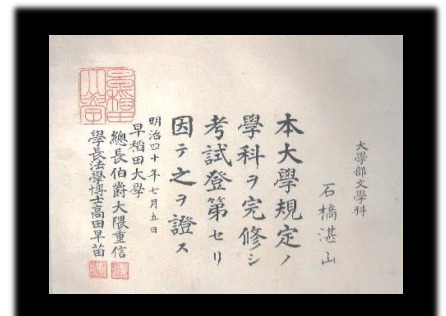 大學部文學科
石橋湛山
本大學規定ノ
學科ヲ完修シ
考試登第セリ
因テ之ヲ證ス
明治四十年七月五日
早稲田大學
總長伯爵大隈重信
學長法學博士高田早苗